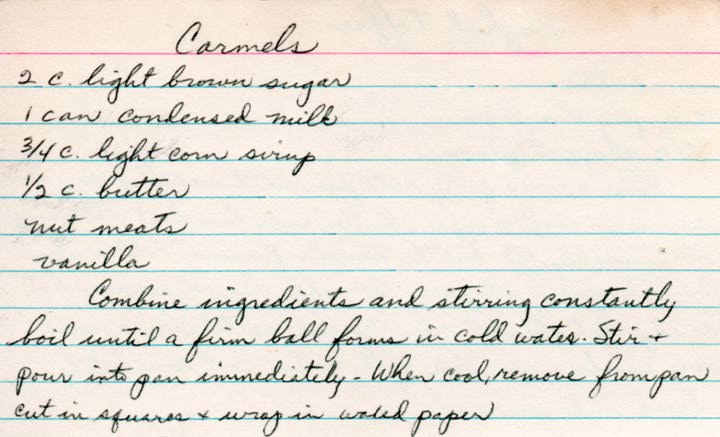 Carmels
2 c. light brown sugar
1 can condensed milk
3/4 c. light corn sirup
1/2 c. butter
nut meats
vanilla
Combine ingredients and stirring constantly
boil until a firm ball forms in cold water. Stir +
pour into pan immediately - When cool, remove from pan
cut in squares + wrap in waxed paper